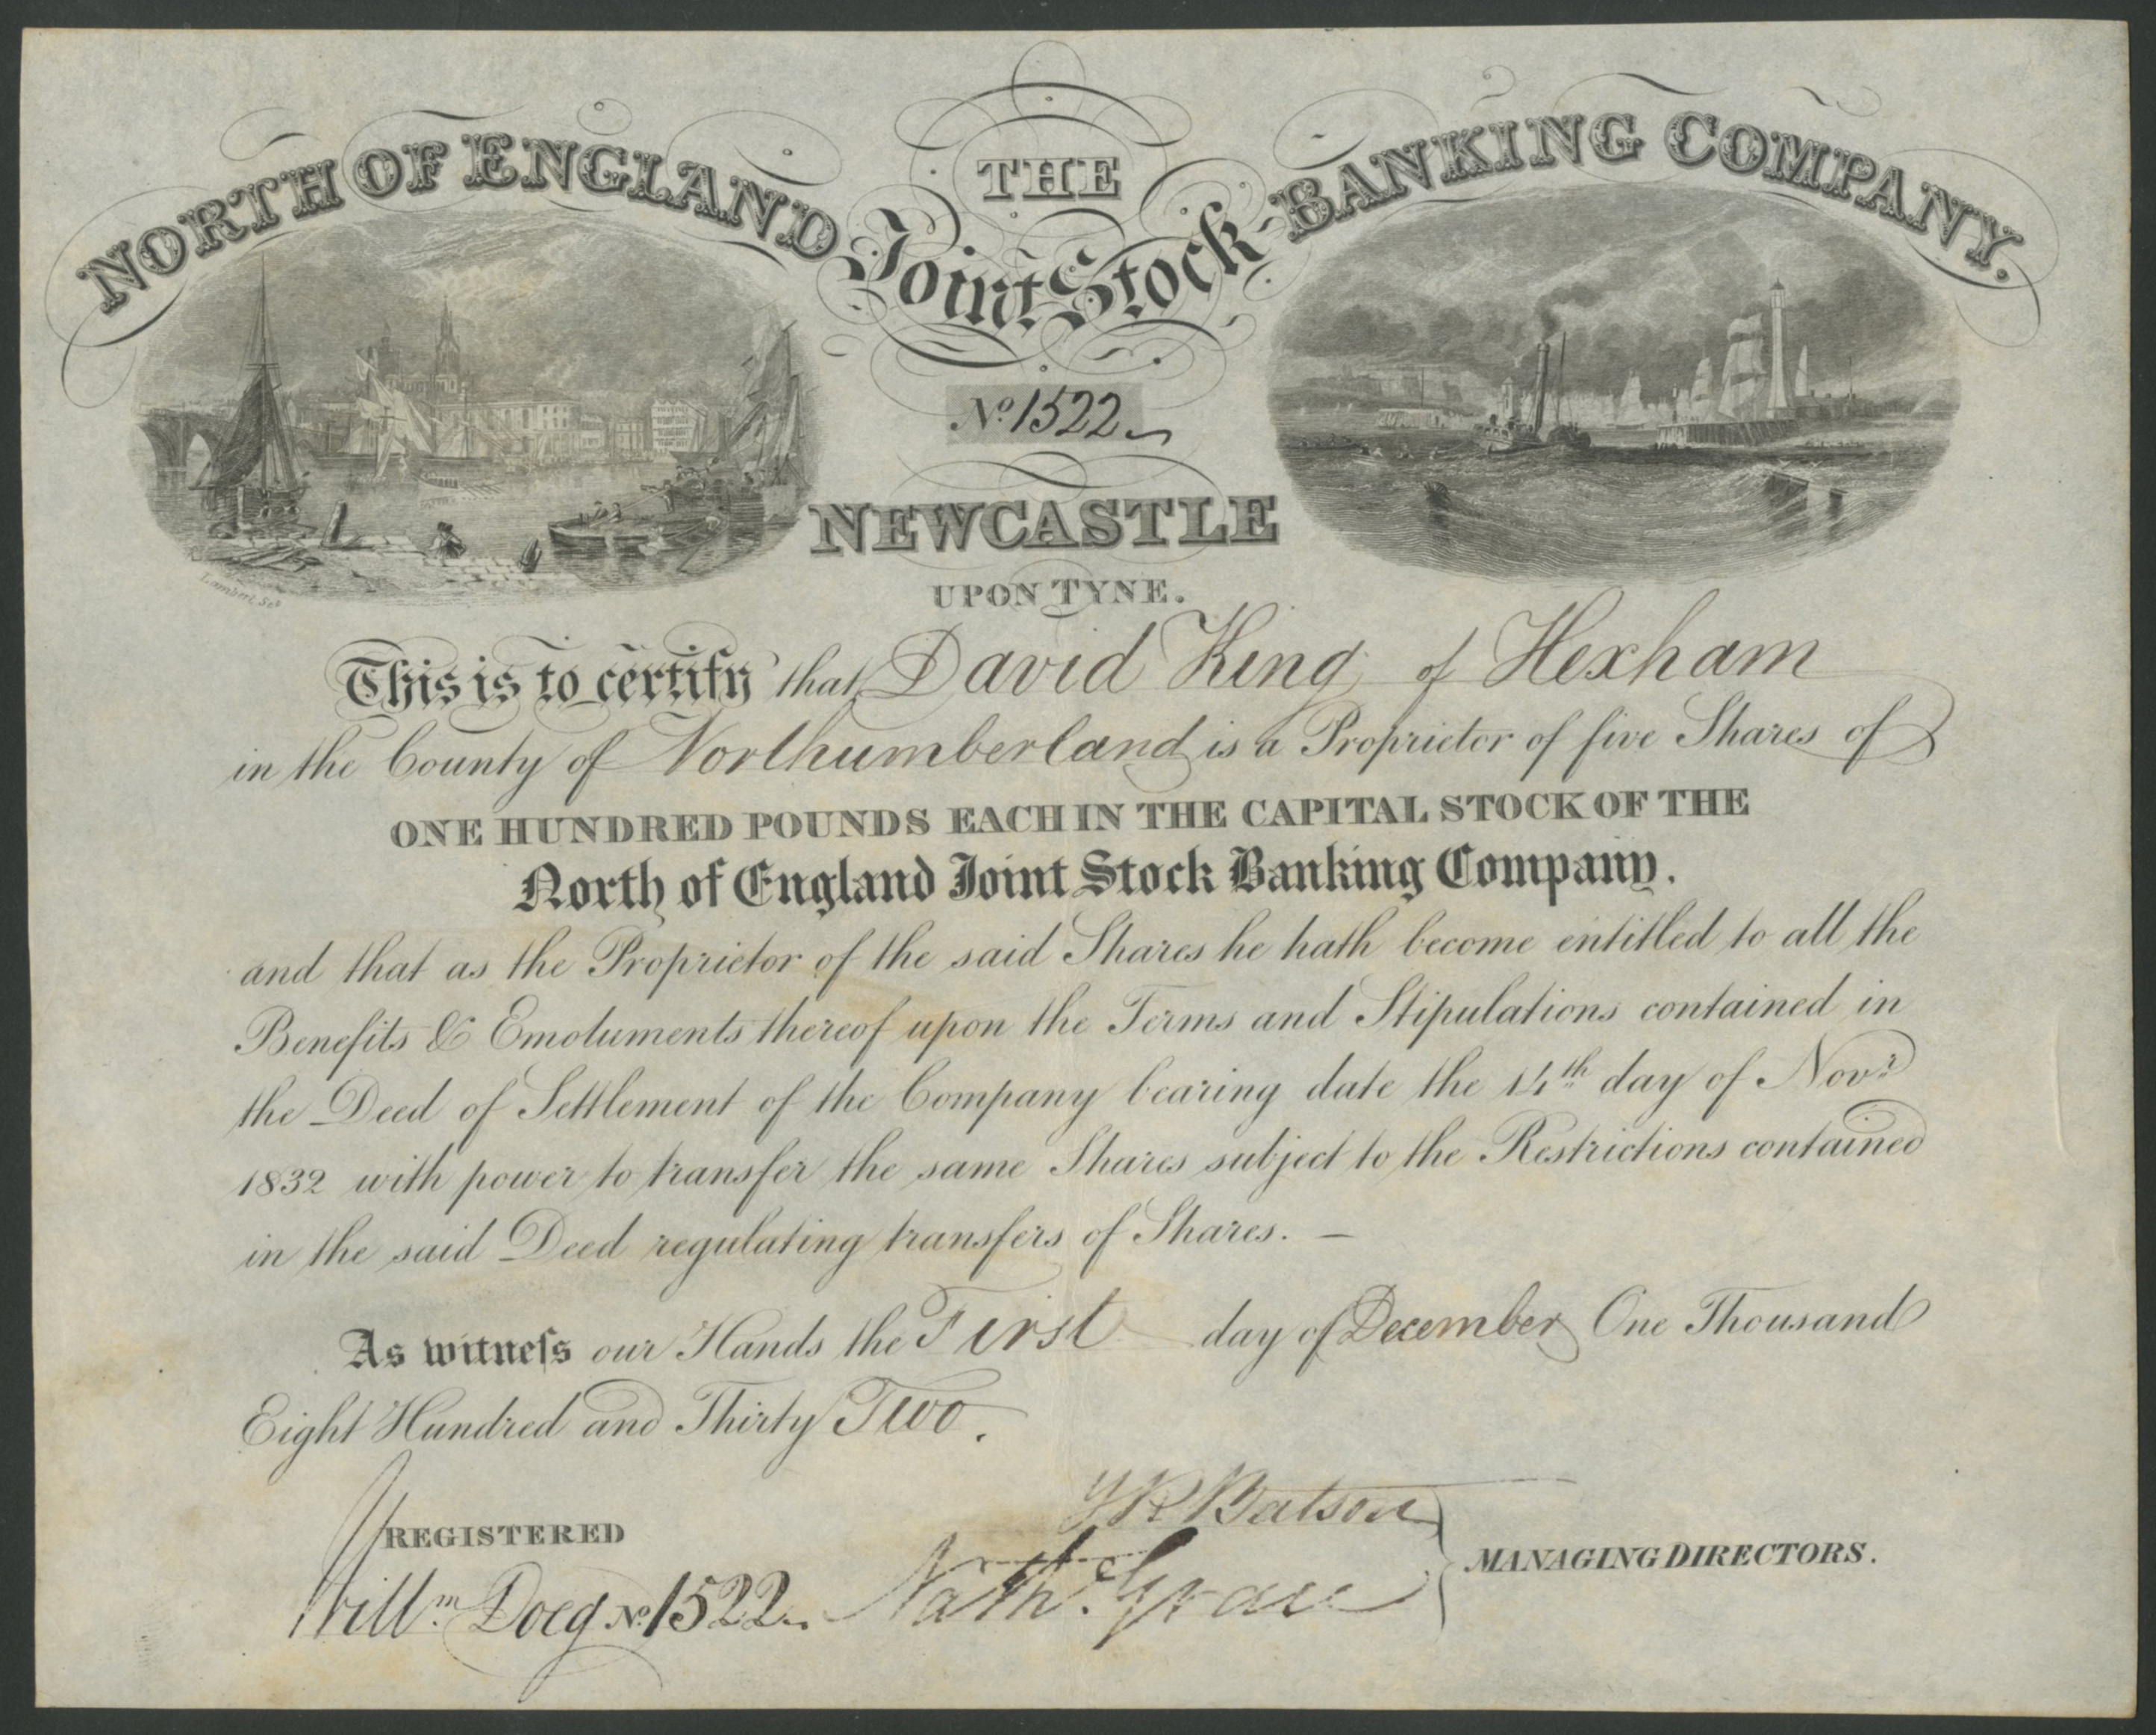 THE
NORTH OF ENGLAND Joint Stock BANKING COMPANY.
No. 1522
NEWCASTLE
UPON TYNE.
Lambert Sct
This is to certify that David King of Hexham
in the County of Northumberland is a Proprietor of five Shares of
ONE HUNDRED POUNDS EACH IN THE CAPITAL STOCK OF THE
North of England Joint Stock Banking Company.
and that as the Proprietor of the said Shares he hath become entitled to all the
Benefits & Emoluments thereof upon the Terms and Stipulations contained in
the Deed of Settlement of the Company bearing date the 14th day of Novr
1832 with power to transfer the same Shares subject to the Restrictions contained
in the said Deed regulating transfers of Shares. —
As witneſs our Hands the First day of December One Thousand
Eight Hundred and Thirty Two.
REGISTERED
Willm Doeg No. 1522
Batson
Nathl. Grace
MANAGING DIRECTORS.